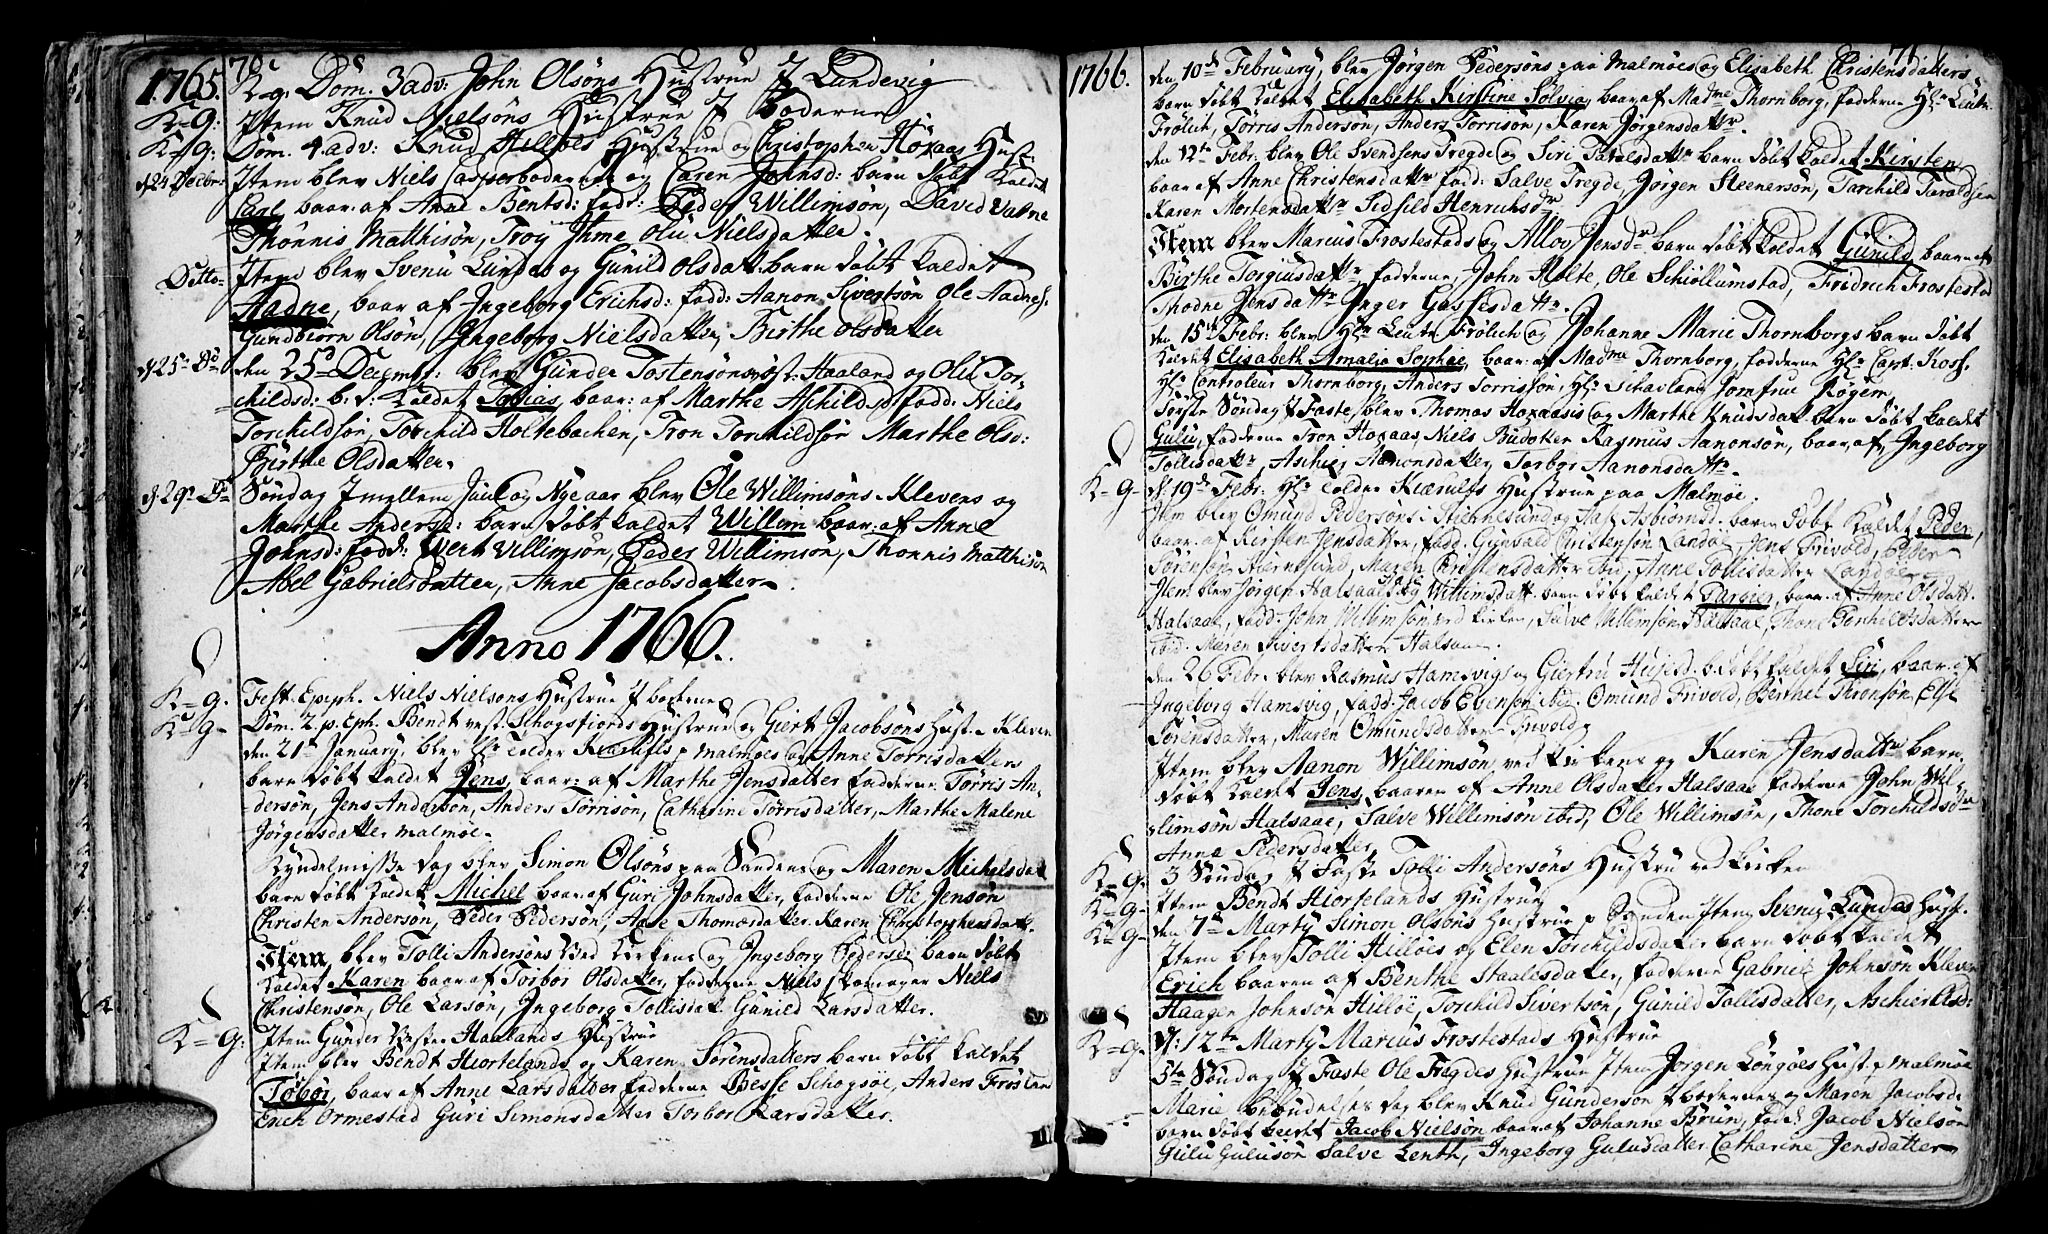 1765. 70.
K=g: Dom. 3 adv: John Olsøns Hustrue i Lundevig
K=g: Item Knud Nielsøns Hustrue i Boderne
K=g: Dom. 4. adv: Knud Hilløes Hustrue og Christopher Høxaas Hust:
d. 24 Decbr: Item blev Niels Casper boderne og Caren Johnsd: barn døbt kaldet
Carl, baar: af Anne Bentsd: fadd: Peder Willimsøn, David
Thönnis Matthisøn, Troy Ihme Oliv Nielsdatter.
Ditto Item blev Svenu Lundes og Gunild Olsdat: barn døbt kaldet
Aadne, baar af Ingeborg Erichsd: fadd: Aanon Sivertsøn Ole Aadnes:
Gundbiørn Olsøn, Ingeborg Nielsdatter, Birthe Olsdatter
d. 25 Do den 25de Decemb: blev Gunder Tostensøns vest: Haaland og Oliv Tor-
childsd: b: d: kaldet Tobias, baar: af Marthe Aschildsd: fadd: Niels
Torchildsøn, Torchild Holtebachen, Tron Torchildsøn Marthe Olsd:
Birthe Olsdatter.
d. 29 Do Søndag imellem Juul og Nyeaar blev Ole Willimsøns Klevens og
Marthe Andersd: barn døbt kaldet Willim baar: af Anne
Johnsd: fadd: Wern Willimsøn, Peder Willimsøn, Thönnis Matthisøn
Abel Gabrielsdatter, Anne Jacobsdatter.
Anno 1766.
K=g. Fest. Epiph. Niels Nielsøns Hustrue i boderne
K=g Dom. 2. p. Eph. Bendt vest. Schogsfiords Hustrue og Giert Jacobsøns Hust: Kleven
den 21de January, blev Hr Tolder Kiærulfs p malmøe og Anne Torrisdatters
barn døbt kaldet Jens, baar: af Marthe Jensdatter fadderne Törris An-
dersøn, Jens Andersøn, Anders Törrisøn, Catharine Törrisdatter, Marthe Malene
Jørgensdatter malmøe.
Kyndelmisse dag blev Simon Olsøns paa Sandene og Maren Michelsdat
barn døbt kaldet Michel baar: af Guri Johnsdatter, fadderne Ole Jensøn
Christen Andersøn, Peder Pedersøn, Aase Thomædatter Karen Christophersdatt.
Item blev Tolli Andersøns Ved Kirkens og Ingeborg Pedersd: barn døbt
kaldet Karen baar af Torbor Olsdatter, fadderne Niels skomager Niels
Christensøn, Ole Larsøn, Ingeborg Tollisdat. Gunild Larsdatter.
K=g: Item Gunder Vester Haalands Hustrue
Item blev Bendt Hiortelands og Karen Sörensdatters barn døbt kaldet
Tobör, baar af Anne Larsdatter fadderne Besse Schogsøe, Anders
Erich Ormestad Guri Simonsdatter Torbor Larsdatter.
1766. 71
den 10de February, blev Jørgen Pedersøns paa Malmøes og Elisabeth Christensdatters
barn døbt kaldet Elisabeth Kirstine Solvig, baar af Madme Thornborg, fadderne Hr Leut:
Frølich, Törris Andersøn, Anders Torrisøn, Karen Jørgensdattr.
den 12te Febr: blev Ole Svendsens Tregde og Siri Taralsdattr barn døbt kaldet Kirsten
baar af Anne Christensdattr fadd: Salve Tregde, Jørgen Steenersøn, Tarchild Taraldsen
Karen Mortensdattr Sidsild Henrichsdr.
Item blev Marcus Frostestads og Allov Jensdr barn døbt kaldet Gunild baar af
Birthe Torgiusdattr fadderne John Holte, Ole Schiollumstad, Fridrich Frostestad
Thodne Jensdattr Inger Gassesdattr.
den 15de Febr: blev Hr Leutn Frølich og Johanne Marie Thornborgs barn døbt
kaldet Elisabeth Amalia Sophae, baar: af Madme Thornborg, fadderne Hr Capt: Kross.
Hr Controleur Thornborg, Anders Torrissøn, Hr Schavland Jomfrue Røgem
Første Søndag i Faste, blev Thomas Hoxaasis og Marthe Knudsdat barn døbt kaldet
Gulu, fadderne Tron Hoxaas, Niels Budoker Rasmus Aanonsøn, baar, af, Ingeborg
Tollisdattr, Aschier Aanonsdatter, Torbor Aanonsdattr.
K=g- d. 19de Febr: Hr Tolder Kiærulfs Hustrue paa Malmøe.
Item blev Omund Pedersøns i Stiernesund og Aase Asbiørnsd. barn døbt kaldet Peder,
baar. af Kirsten Jensdatter, fadd. Gunvald Christensøn Landøe, Jens Trivold, Peder
Sørensøn Stiernesund, Maren Christensdatter ibid. Anne Tollisdatter Landøe
Item blev Jørgen Halsaas og Willimsdatt. barn døbt kaldet Targier, baar. af Anne Olsdatt.
Halsaae, fadd. John Willimsøn ved kirken, Salve Willimsøn Halsaae, Thone Torchelsdatter
ibid. Maren Sivertsdatter Halsaae.
den 26 Febr. blev Rasmus Hamsvigs og Giertru b: døbt kaldet Siri, baar. af
Ingeborg Hamsvig, fadd. Jacob Evensøn ibid. Omund Trivold, Berthel Thronsøn, Else
Sørensdatter, Maren Omundsdatter Trivold
Item blev Aanon Willimsøn ved kirkens og Karen Jensdattr barn
døbt kaldet Jens, baaren af Anne Olsdatter Halsaae fadderne John Wil-
limsøn Halsaae, Salve Willimsøn ibid, Ole Willimsøn, Thone Torchildsdr
Anne Pedersdatter
K=g. 3 Søndag i Faste Tolli Andersøns Hustru ved kirken
K=g- Item Bendt Hiortelands Hustrue
K=g- den 7de Marty Simon Olsøns Hustrue p Sanden Item Svenu Lundes Hust.
Item blev Tolli Hilløes og Elen Torchildsdatter barn døbt kaldet
Erich baaren af Benthe Staalisdatter, fadderne Gabriel Johnsøn Kleven
Haagen Johnsøn Hilløe, Torchild Sivertsøn, Gunild Tollisdatter, Aschier Olsd:
K=g. d: 12te Marty Marcus Frostestads Hustrue
5te Søndag i Faste Ole Tregdes Hustrue Item Jørgen Longøes Hust. p Malmøe
Marie bebudelses dag blev Knud Gundersøn i boderne og Maren Jacobsd:
barn døbt kaldet Jacob Nielsøn baar af Johanne Brun, fadd: Jacob Nielsøn
Gulu Gulusøn Salve Lenth, Ingeborg Gulusdatter Catharine Jensdatter